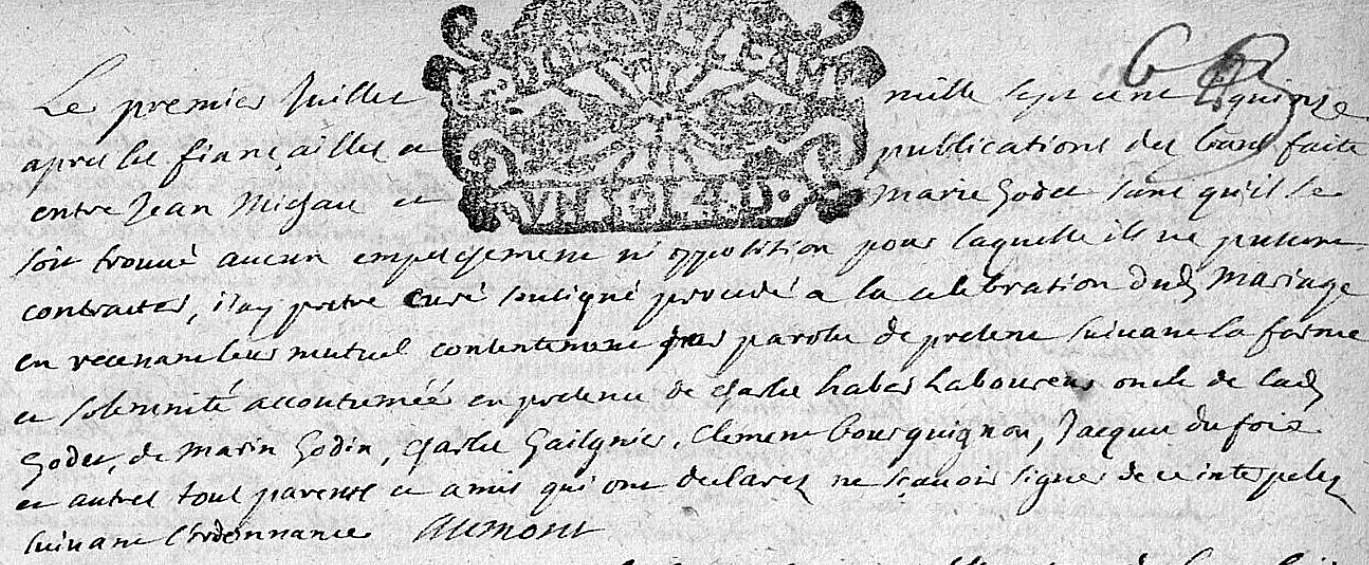 Le premier Juillet mille sept cent quinze
apres les fiançailles et publications des bans faite
entre Jean Michau et Marie Godet sans qu'il se
soit trouvé aucun empeschement ni opposition pour laquelle ils ne pussent
contracter, i'ay pretre curé soubsigné procedé a la celebration dud mariage
en recevant leur mutuel consentement par parole de present suivant la forme
et solemnité accoutuméé en presence de Charle laboureur oncle de lad
Godet, de Marin Godin, Charle Clement Bourguignon, Jacque dufoix
et autres tous parents et amis qui ont declarez ne sçavoir signer de ce interpelez
suivant l'ordonnance Aumont